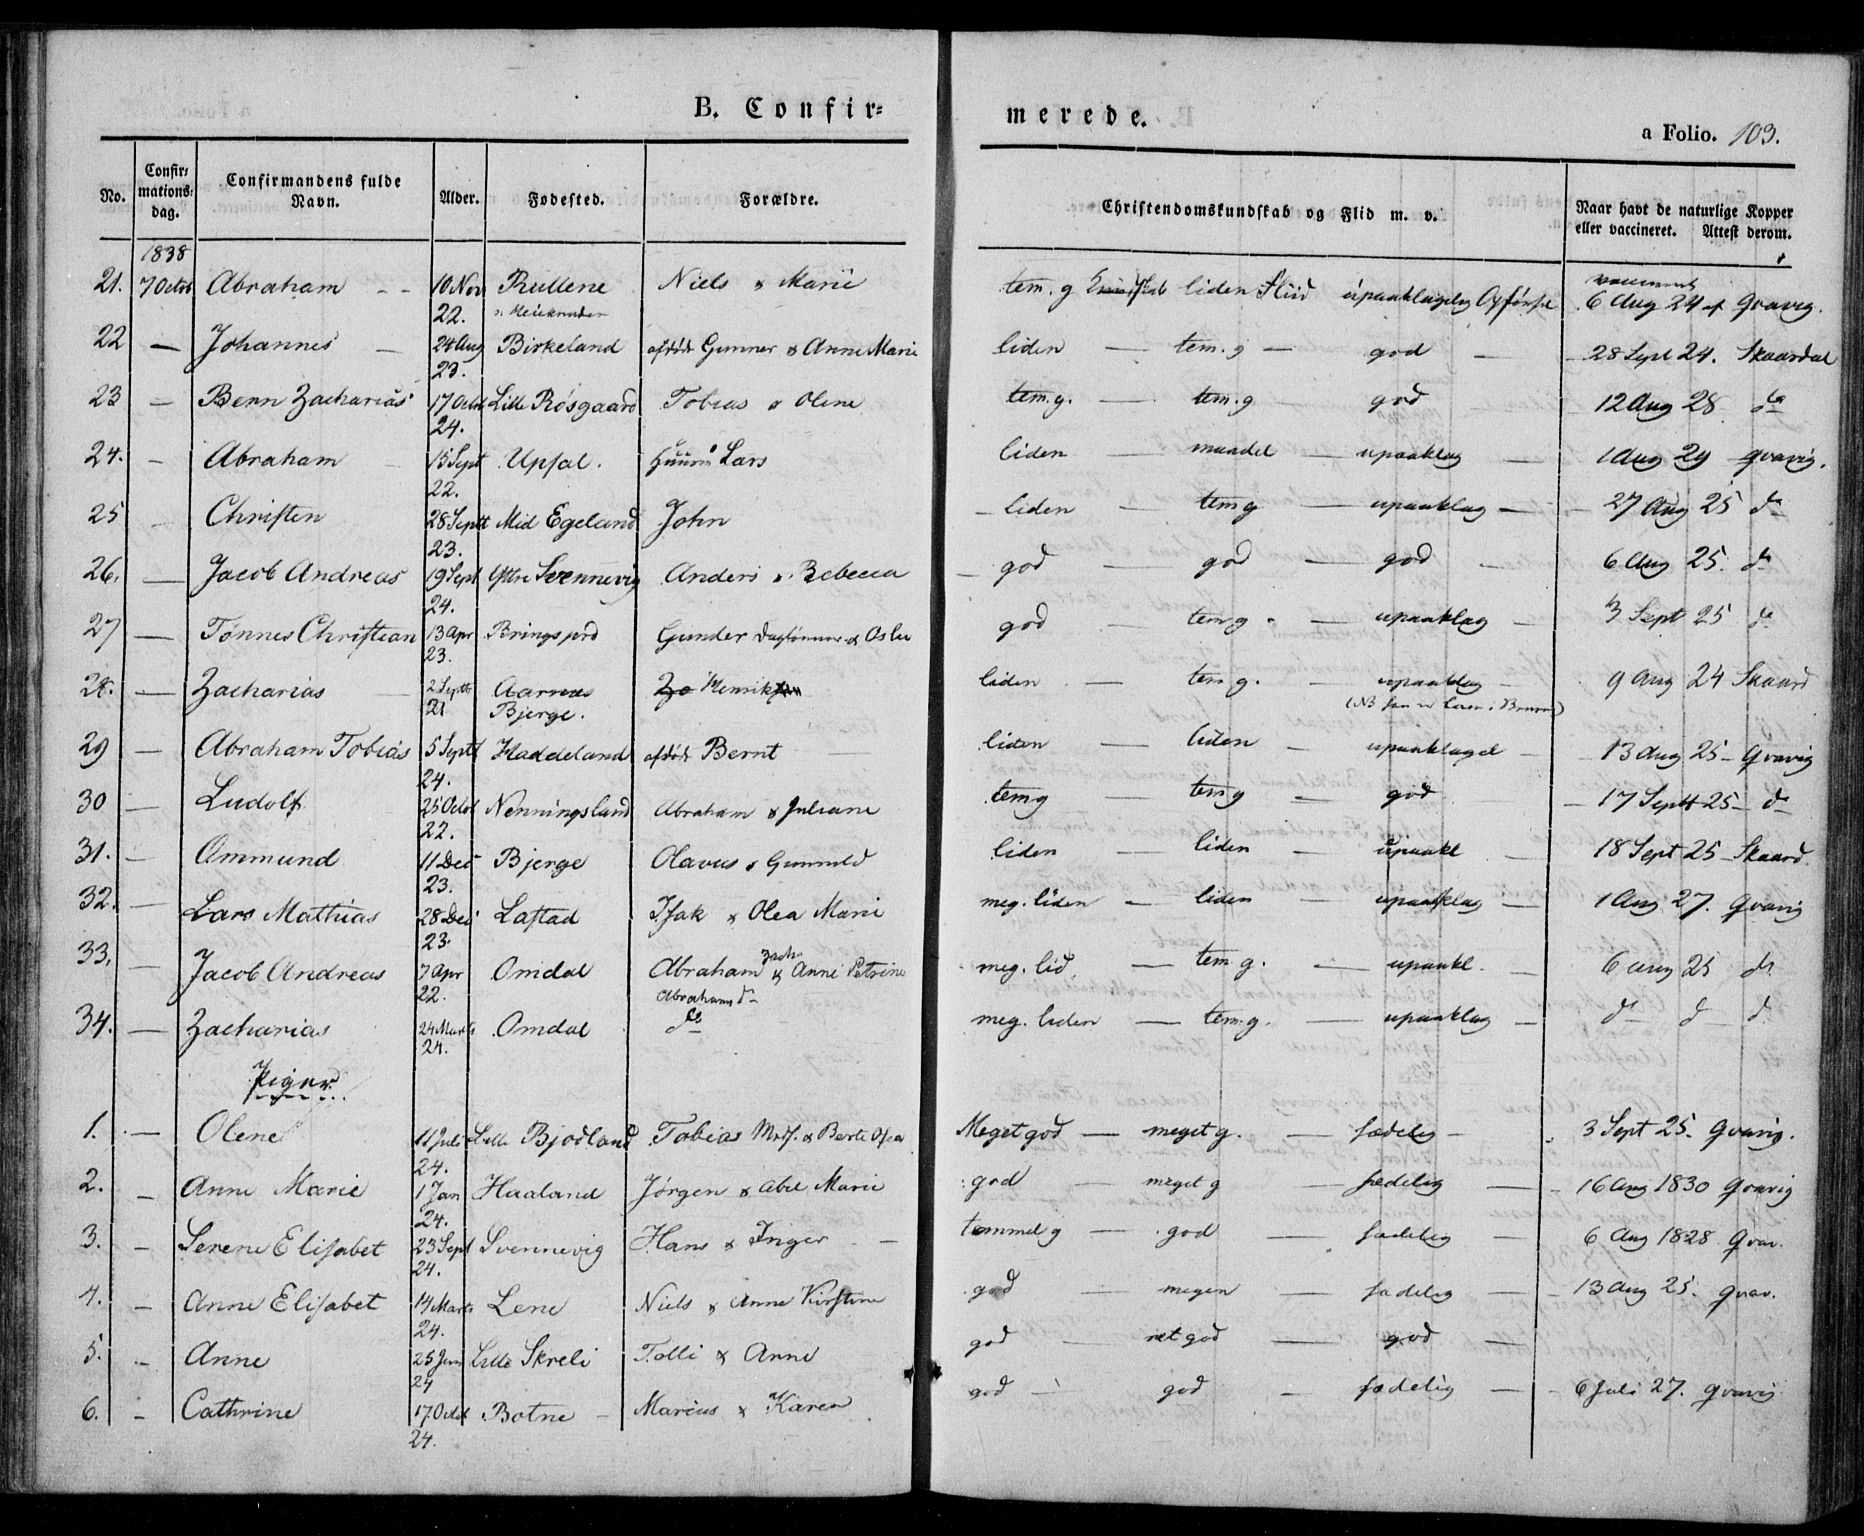 B. Confir=
merede.
a Folio. 103.
No. Confir= mations= dag. Confirmandens fulde Navn. Alder. Fødested. Forældre. Christendomskundskab og Flid m. v. Naar havt de naturlige Kopper eller vaccineret. Attest derom.
1838
21. 7 Octob Abraham 10 Nov 22. Niels & Marie tem. g liden Fliid upaaklagelig Opførsel 6 Aug 24 af Qvavig.
22 — Johannes — 24 Aug 23. Birkeland afdøde Gunner & Anne Marie liden — tem. g — god — 28 Sept 24. Skaardal
23 — Bern Zacharias 17 Octob 24. Lille Røsgaard Tobias & Olene tem.g. — tem.g — god 12 Aug 28 do
24. — Abraham 15 Sept 22. Upsal. Lars liden — maadel — upaaklag — 1 Aug 29 Qvavig.
25 Christen 28 Sept 23. Mid Egeland John — liden — tem g — upaaklag — 27 Aug 25 do
26. — Jacob Andreas 19 Sept 24. Yttre Svennevig Anders & Rebecca — god — god — god — 6 Aug 25. do
27 — Tønnes Christian 13 Apr 23. Bringsjord Gunder & Aslu god — tem g. — upaaklag — 3 Sept 25 do
28. — Zacharias — 2 Septbr 21 Aarnes Bjerge. Henrik liden — tem g. — upaaklag — 9 Aug 24 Skaard
29 — Abraham Tobias 5 Septt 24. Haddeland afdøde Bernt liden — liden — upaaklagel — 13 Aug 25 — Qvavig
30 — Ludolf 25 Octob 22. Nenningsland Abraham & Juliane tem g — tem g — god — 17 Septt 25 — do
31. — Ommund 11 Dec 23. Bjerge Olavus & Gunnild liden — liden — upaakl — 18 Sept 25 — Skaard.
32. — Lars Mathias 28 Dec 23. Laftad Isak & Olea Marie meg. liden — liden — upaaklag — 1 Aug 27. Qvavig
33. — Jacob Andreas 7 Apr 22. Omdal Abraham Zacha & Anne Petrine Abrahamsd meg. lid. — tem g. — upaakl. — 6 Aug 25 do
34. — Zacharias 24 Marts 24. Omdal do meg. liden — tem. g. — upaaklag — do do do
Piger
1. — Olene 11 Juli 24. Lille Bjodland Tobias & Berte Meget god — meget g. — sædelig — 3 Sept 25. Qvavig.
2. — Anne Marie 1 Jan 24. Haaland Jørgen & Abel Marie god — meget g — sædelig — 16 Aug 1830 Qvavig
3. — Serene Elisabet 23 Sept 24. Svennevig Hans & Inger — temmel g — god — sædelig — 6 Aug 1828 Qvav.
4. — Anne Elisabet 14 Marts 24. Lene Niels & Anne Kirstine god — megen — sædelig — 13 Aug 25. Qvav.
5. — Anne 25 Jan 24 Lille Skreli Tolli & Anne god — ret god — god —
6. — Cathrine 17 Octob 24. Botne — Marcus & Karen god — god — sædelig — 6 Juli 27. Qvavig